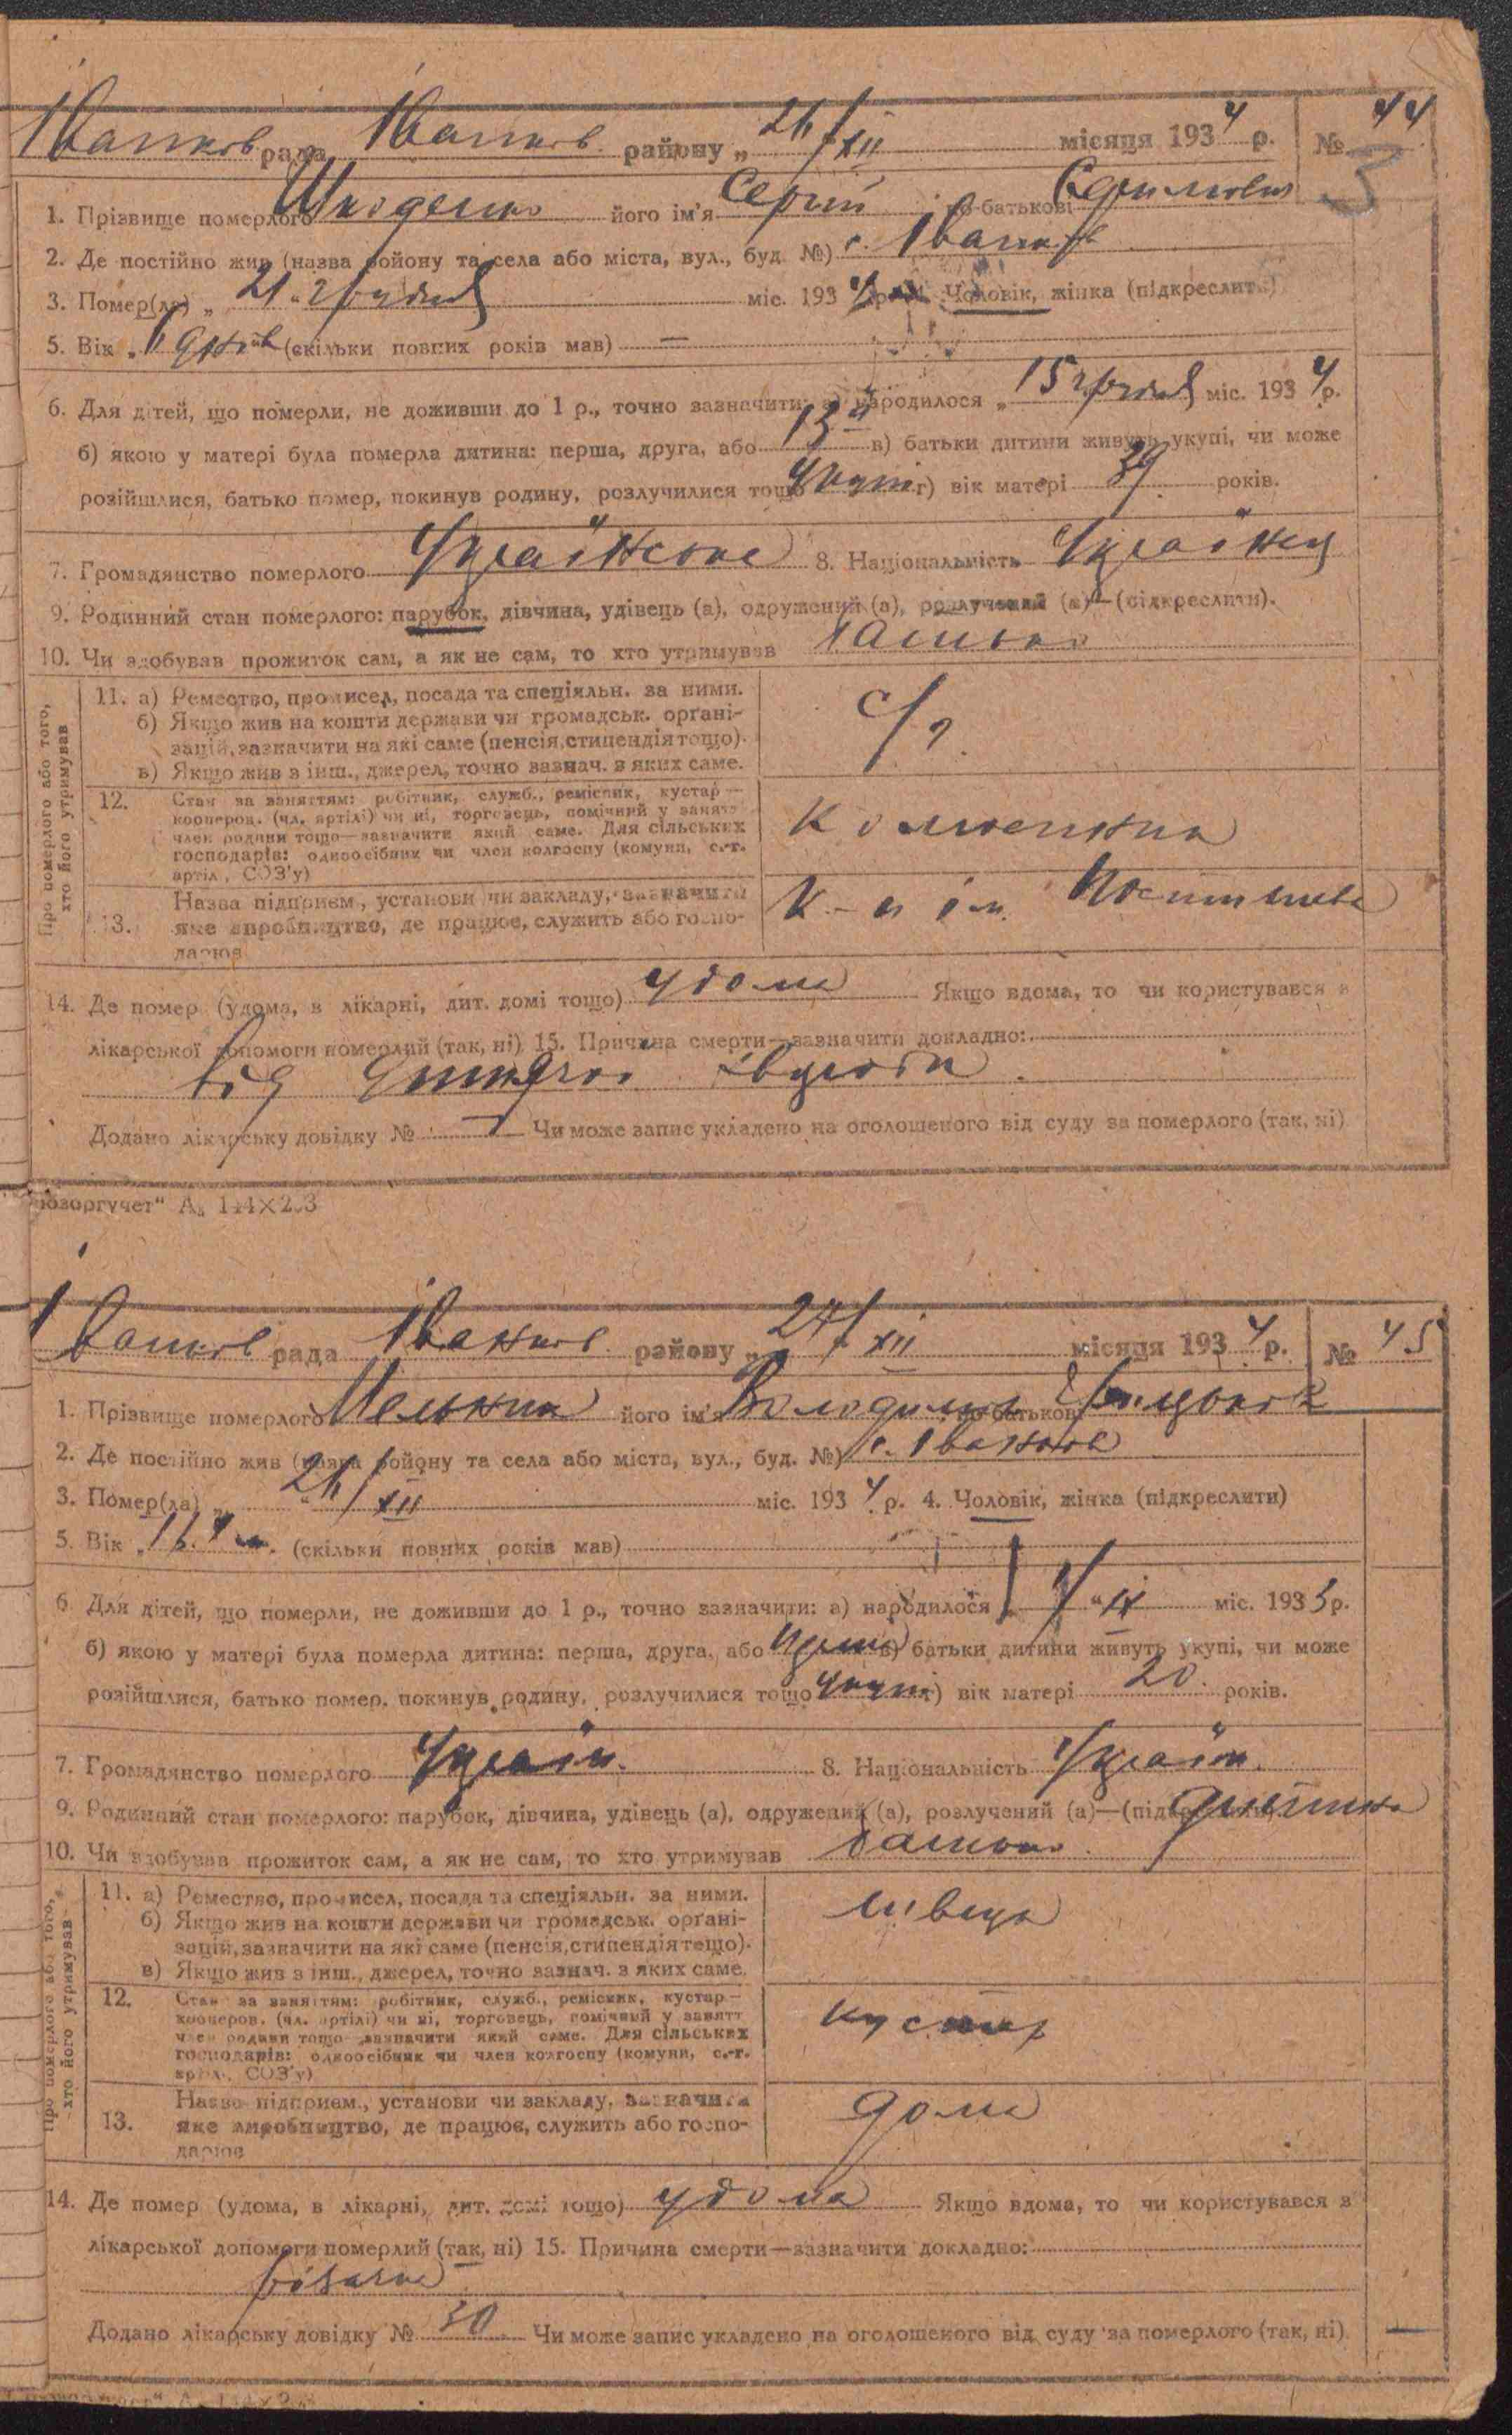 Іванков рада Іванків. району „ 21/XII місяця 1934 р. № 44
3
1. Прізвище померлого Шкоденко його ім'я Сергій по-батькові
2. Де постійно жив (назва ройону та села або міста, вул., буд. №) с. Іванків
3. Помер(ла) „ 21 „ грудня міс. 1934 р. 4. Чоловік, жінка (підкреслити)
5. Вік „ 6 днів (скільки повних років мав) —
6. Для дітей, що померли, не доживши до 1 р., точно зазначити: а) народилося „ 15 грудня міс. 1934 р.
б) якою у матері була померла дитина: перша, друга, або 13-а в) батьки дитини живуть укупі, чи може
розійшлися, батько помер, покинув родину, розлучилися тощо укупі г) вік матері 39 років.
7. Громадянство померлого Українське 8. Національність Українец
9. Родинний стан померлого: парубок, дівчина, удівець (а), одружений (а), розлучений (а)—(підкреслити).
10. Чи здобував прожиток сам, а як не сам, то хто утримував батько
Про померлого або того, хто його утримував
11. а) Ремество, промисел, посада та спеціяльн. за ними.
б) Якщо жив на кошти держави чи громадськ. органі-
зацій, зазначити на які саме (пенсія, стипендія тощо).
в) Якщо жив з інш., джерел, точно зазнач. з яких саме.
с/г.
12. Стан за заняттям: робітник, служб., ремісник, кустар—
кооперов. (чл. артілі) чи ні, торговець, помічний у занятт
член родини тощо—зазначити який саме. Для сільських
господарів: одноосібник чи член колгоспу (комуни, с.-г.
артіл., СОЗ'у)
13. Назва підприєм., установи чи закладу, зазначити
яке виробництво, де працює, служить або госпо-
дарює
к-п ім. Постишева
14. Де помер (удома, в лікарні, дит. домі тощо) удома Якщо вдома, то чи користувався з
лікарської допомоги померлий (так, ні) 15. Причина смерти—зазначити докладно:
від
Додано лікарську довідку № — Чи може запис укладено на оголошеного від суду за померлого (так, ні)
юзоргучет" А₅ 144×203
Іванков рада Іванков. району „ 24/XII місяця 1934 р. № 45
1. Прізвище померлого Мельник його ім'я Володимир по-батькові
2. Де постійно жив (назва ройону та села або міста, вул., буд. №) с. Іванков
3. Помер(ла) „ 24/XII міс. 1934 р. 4. Чоловік, жінка (підкреслити)
5. Вік „ (скільки повних років мав)
6. Для дітей, що померли, не доживши до 1 р., точно зазначити: а) народилося „ міс. 1933 р.
б) якою у матері була померла дитина: перша, друга, або перша в) батьки дитини живуть укупі, чи може
розійшлися, батько помер, покинув родину, розлучилися тощо укупі г) вік матері 20. років.
7. Громадянство померлого Україн. 8. Національність Україн.
9. Родинний стан померлого: парубок, дівчина, удівець (а), одружений (а), розлучений (а)—(підкреслити) дитина
10. Чи здобував прожиток сам, а як не сам, то хто утримував батько.
Про померлого або того, хто його утримував
11. а) Ремество, промисел, посада та спеціяльн. за ними.
б) Якщо жив на кошти держави чи громадськ. органі-
зацій, зазначити на які саме (пенсія, стипендія тощо).
в) Якщо жив з інш., джерел, точно зазнач. з яких саме.
швець
12. Стан за заняттям: робітник, служб., ремісник, кустар—
кооперов. (чл. артілі) чи ні, торговець, помічний у занятт
член родини тощо—зазначити який саме. Для сільських
господарів: одноосібник чи член колгоспу (комуни, с.-г.
артіл., СОЗ'у)
кустар
13. Назва підприєм., установи чи закладу, зазначити
яке виробництво, де працює, служить або госпо-
дарює
дома
14. Де помер (удома, в лікарні, дит. домі тощо) удома Якщо вдома, то чи користувався з
лікарської допомоги померлий (так, ні) 15. Причина смерти—зазначити докладно:
Додано лікарську довідку № 30 Чи може запис укладено на оголошеного від суду за померлого (так, ні) —